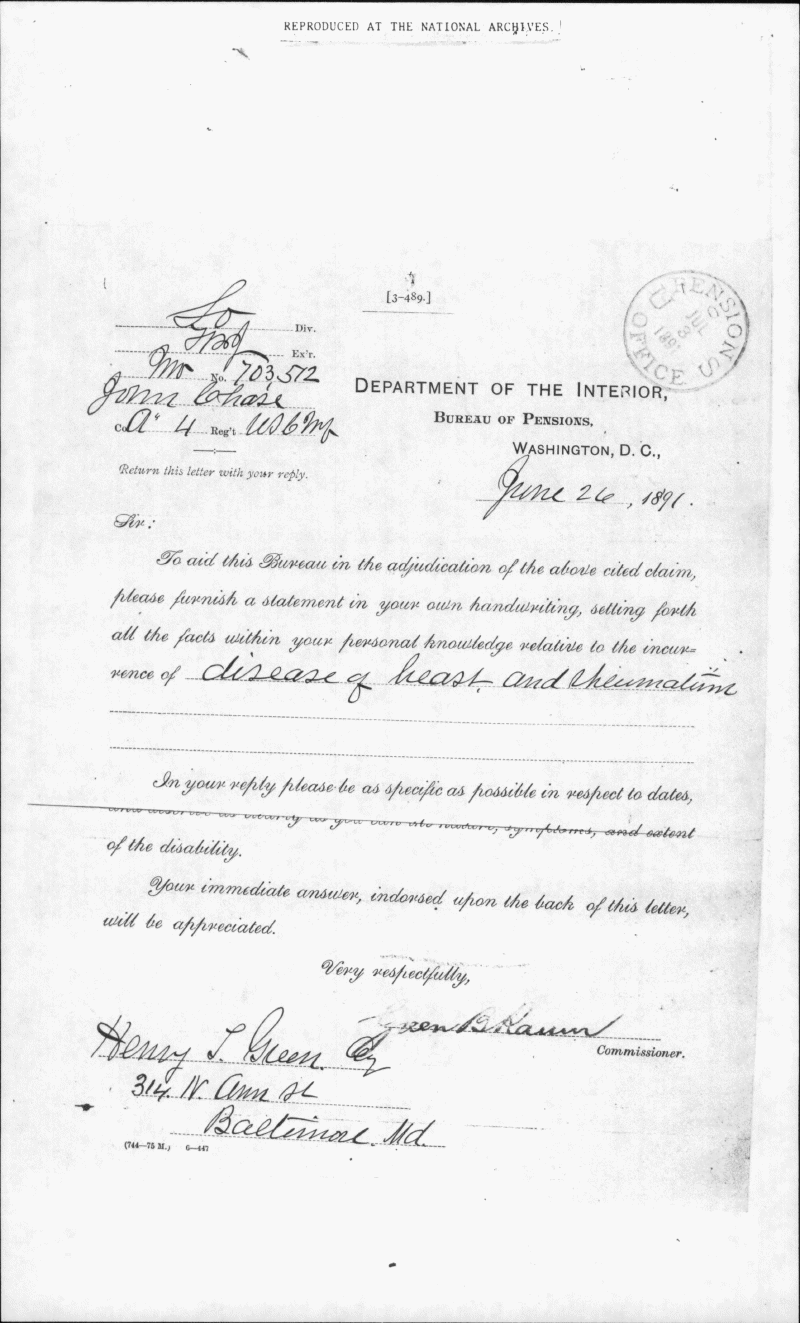 REPRODUCED AT THE NATIONAL ARCHIVES.
[3-489.]
So Div.
Ex'r.
No. 703,512
John Chase
Co. "A" 4 Reg't USC Inf
Return this letter with your reply.
PENSIONS OFFICE
JUL 3
DEPARTMENT OF THE INTERIOR,
BUREAU OF PENSIONS,
WASHINGTON, D. C.,
June 26, 1891.
Sir:
To aid this Bureau in the adjudication of the above cited claim,
please furnish a statement in your own handwriting, setting forth
all the facts within your personal knowledge relative to the incur=
rence of disease of heart and rheumatism
In your reply please be as specific as possible in respect to dates,
and describe as clearly as you can its nature, symptoms, and extent
of the disability.
Your immediate answer, indorsed upon the back of this letter,
will be appreciated.
Very respectfully,
Green B Raum
Commissioner.
Henry T. Green
314 N. Ann St
Baltimore. Md.
(744—75 M.) 6—447